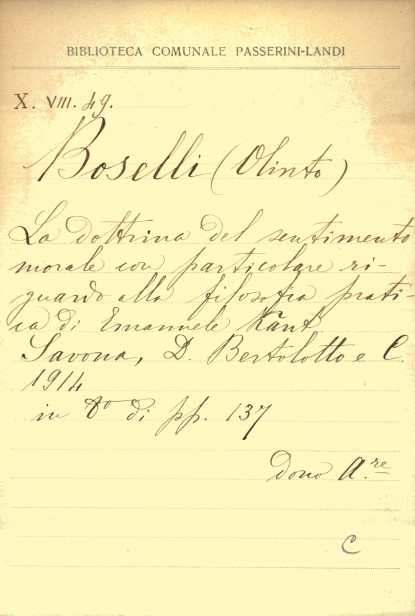 BIBLIOTECA COMUNALE PASSERINI-LANDI
X. VIII. 49.
Boselli (Olinto)
La dottrina del sentimento
morale con particolare ri-
guardo alla filosofia prati-
ca di Emanuele Kant
Savona, D. Bertolotto e C.
1914
in 8º di pp. 137
dono A.re
C